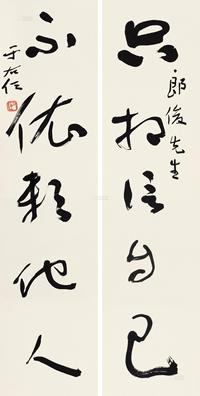 只相信自己
郎俊先生
不依赖他人
于右任